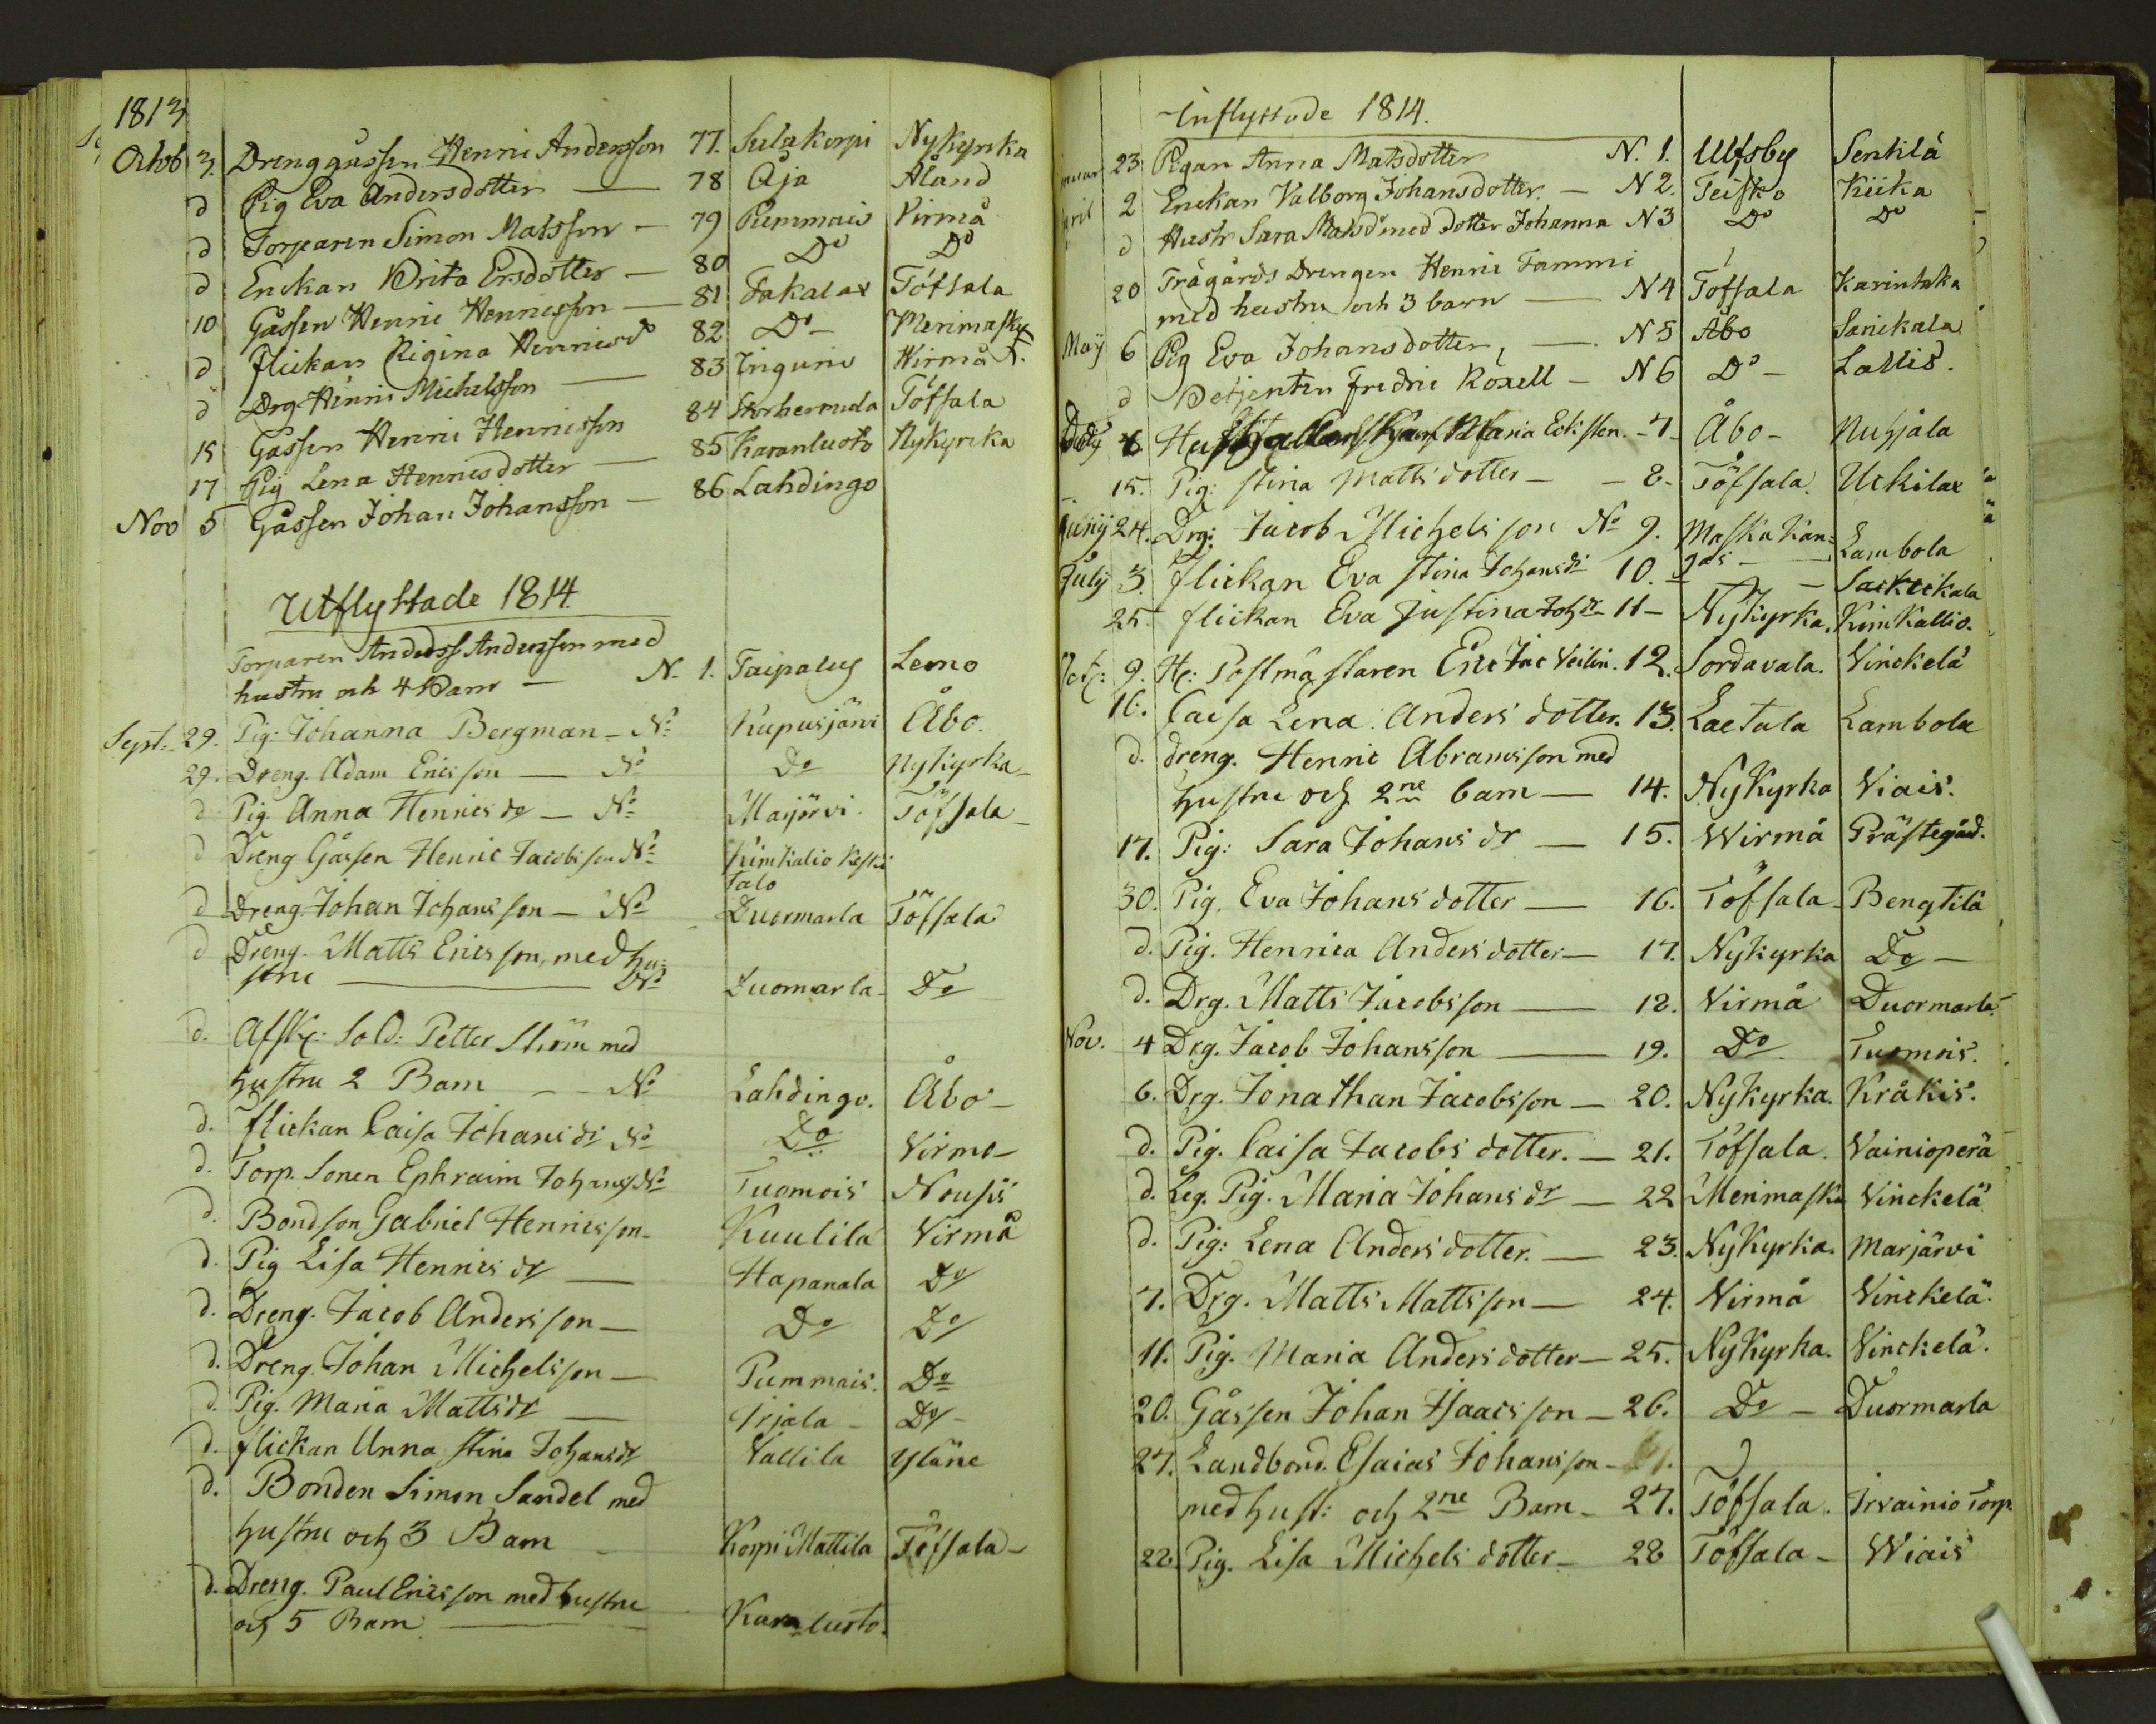 1813
Octob 3. Drenggåssen Henric Andersson 77. Sulakorpi Nykyrka
d Pig Eva Andersdotter — 78 Äja Åland
d Torparen Simon Matsson — 79 Pummais Virmå
d Enckan Brita Ersdotter — 80 Do Do
10 Gåssen Henric Henricsson — 81 Sakalax Töfsala
d Flickan Rigina Henricsd 82 Do — Merimasku
d Drg Henric Michelsson — 83 Inguris Wirmå
15 Gåssen Henric Henricsson 84 Storhermula Töfsala
17 Pig Lena Henricsdotter — 85 Karanluoto Nykyrka
Nov 5 Gåssen Johan Johansson — 86 Lahdingo
Utflyttade 1814.
Torparen Anderss Andersson med
hustru och 4 Barn — N. 1. Taipalus Lemo
Sept: 29. Pig: Johanna Bergman — No Kupusjärvi Åbo.
29. Dreng. Adam Ericsson — No Do Nykyrka —
d Pig. Anna Henricsdr — No Marjärvi. Töfsala —
d Dreng Gåssen Henric Jacobsson No Kimkalio Keski
talo
d Dreng. Johan Johansson — No Duormarla Töfsala
d Dreng. Matts Ericsson, med hu-
stru — No Duomarla — Do
d. Afsk: Sold: Petter Ström med
hustru 2 Barn — No Lahdingo. Åbo —
d. flickan Caisa Johansdr No Do Virmo —
d. Torp. Sonen Ephraim Johanss No Tuomois Nousis
d. Bondson Gabriel Henricsson — Kuulila Virmå
d. Pig Lisa Henricsdr — Hapanala Do
d. Dreng. Jacob Andersson — Do Do
d. Dreng. Johan Michelsson — Pummais. Do
d. Pig. Maria Mattsdr — Irjala — Do —
d. flickan Anna Stina Johansdr Vallila Yläne
d. Bonden Simon Sandel med
hustru och 3 Barn — Korpi Mattila Töfsala —
d. Dreng. Paul Ericsson med hustru
och 5 Barn. — Karaluoto.
Inflyttade 1814.
nuar 23 Pigan Anna Matsdotter N. 1. Ulfsby Senkilä
pril 2 Enckan Valborg Johansdotter. — N 2. Teisko Kiika
d Hustr Sara Matsd med dotter Johanna N 3 Do Do
20 Trägårds Drengen Henric Tammi
med hustru och 3 barn — N 4 Töfsala Karinkaka
Maÿ 6 Pig Eva Johansdotter, — N 5 Åbo Sarickala
d Betjenten Fredric Roxell — N 6 Do — Lallis.
6 Maria Ecksten. — 7 — Åbo — Nuhjala
15. Pig: Stina Mattsdotter — — 8 — Töfsala. Uckilax
Junij 24. Drg: Jacob Michelsson No 9. Masku Kan- Lambola
July 3. flickan Eva Stina Johansdr 10. gas — — Sarkickala
25. flickan Eva Justina Johdr — 11 — Nykyrka. Kimkallio.
Oct: 9. H: Postmästaren Eric Jac Veilin. 12. Sordavala. Vinckelä
16. Caisa Lena Andersdotter. 13. Laetala Lambola
d. dreng. Henric Abramsson med
hustru och 2ne barn — 14. Nykyrka Viais.
17. Pig: Sara Johansdr — 15. Wirmå Prästegård.
30. Pig. Eva Johansdotter — 16. Töfsala Bengtilä
d. Pig. Henrica Andersdotter — 17. Nykyrka Do —
d. Drg. Matts Jacobsson — 18. Virmå Duormarla
Nov. 4 Drg. Jacob Johansson — 19. Do Tuomois.
6. Drg. Jonathan Jacobsson — 20. Nykyrka. Kråkis.
d. Pig. Caisa Jacobsdotter. — 21. Töfsala. Vainioperä
d. Leg. Pig. Maria Johansdr — 22 Merimasku Vinckelä
d. Pig: Lena Andersdotter. — 23. Nykyrka. Marjärvi
7. Drg. Matts Mattsson — 24. Virmå Vinckelä.
11. Pig. Maria Andersdotter — 25. Nykyrka. Vinckelä.
20. Gåssen Johan Isaacsson — 26. Do — Duormarla
27. Landbond. Esaias Johansson —
med hust: och 2ne Barn — 27. Töfsala. Irvainio Torp
28. Pig. Lisa Michelsdotter — 28 Töfsala — Wiais